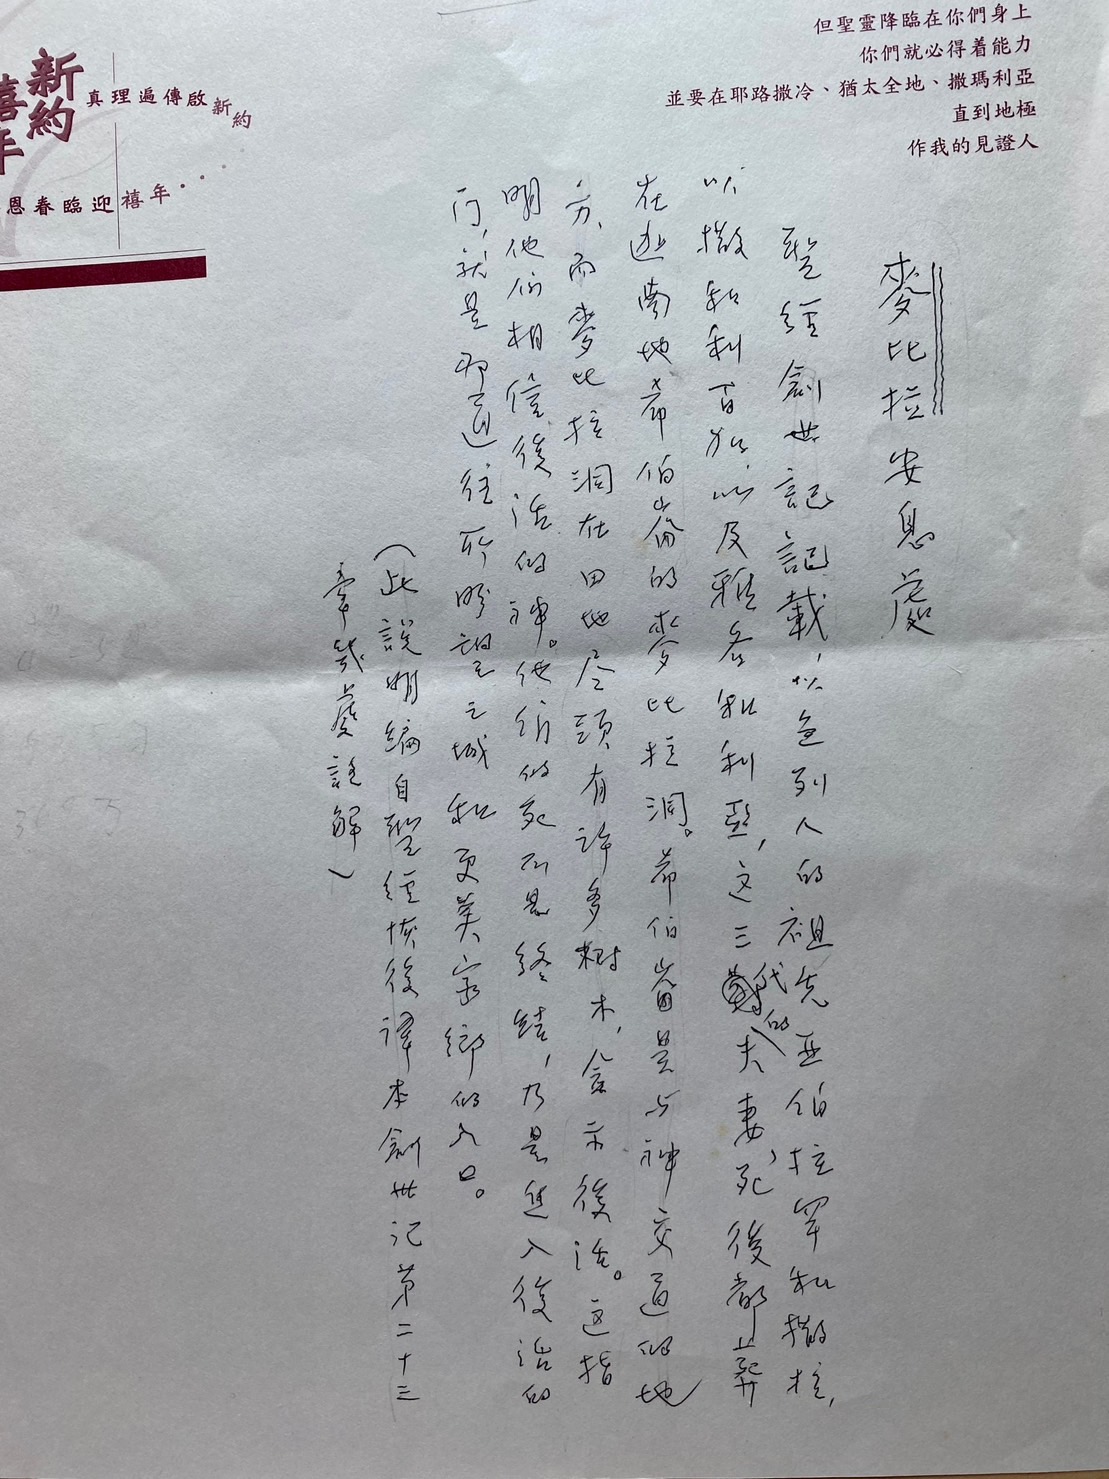 但聖靈降臨在你們身上
你們就必得着能力
並要在耶路撒冷、猶太全地、撒瑪利亞
直到地極
作我的見證人
新約
禧年
真理遍傳啟新約
恩春臨迎禧年...
麥比拉安息處
聖經創世記記載，以色列人的祖先亞伯拉罕和撒拉，
以撒和利百加，以及雅各和利亞，这三代的夫妻，死後都上葬
在迦南地希伯崙的麥比拉洞。希伯崙是与神交通的地
方，而麥比拉洞在田地尽頭有許多樹木，含示復活。这指
明他们相信復活的神。他们的死不是終結，乃是進入復活的
门，就是那通往所盼望之城和更美家鄉的入口。
（此說明編自聖經恢復譯本創世记第二十三
章幾處註解）